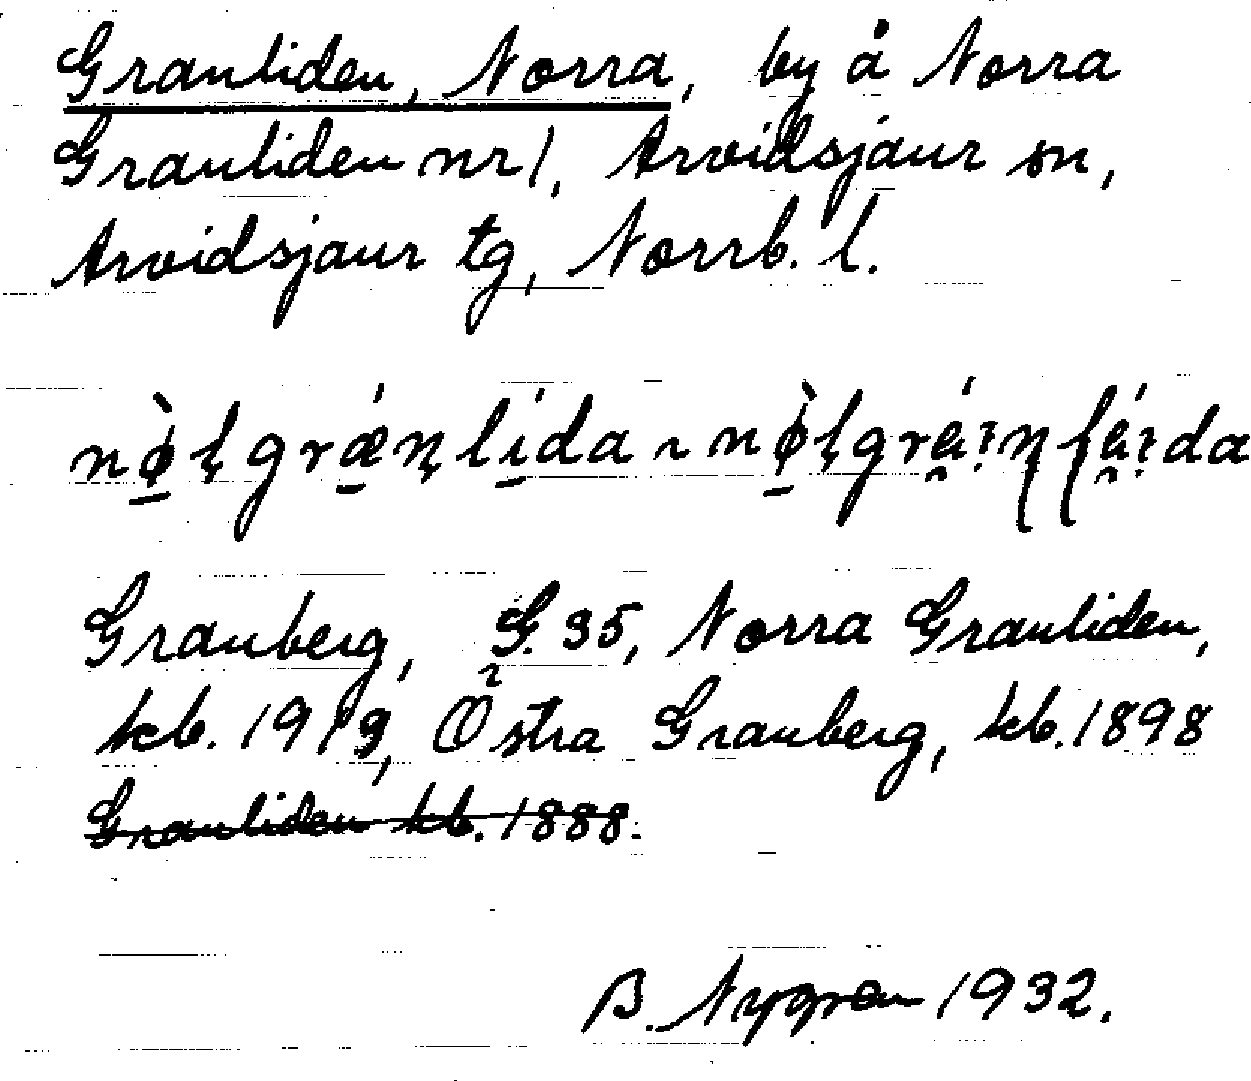 Granliden, Norra, by å Norra
Granliden nr 1, Arvidsjaur sn,
Arvidsjaur tg, Norrb. l.
Granberg, G. 35, Norra Granliden,
kb. 1919, Östra Granberg, kb. 1898
Granliden kb. 1888.
B. Nygren 1932.